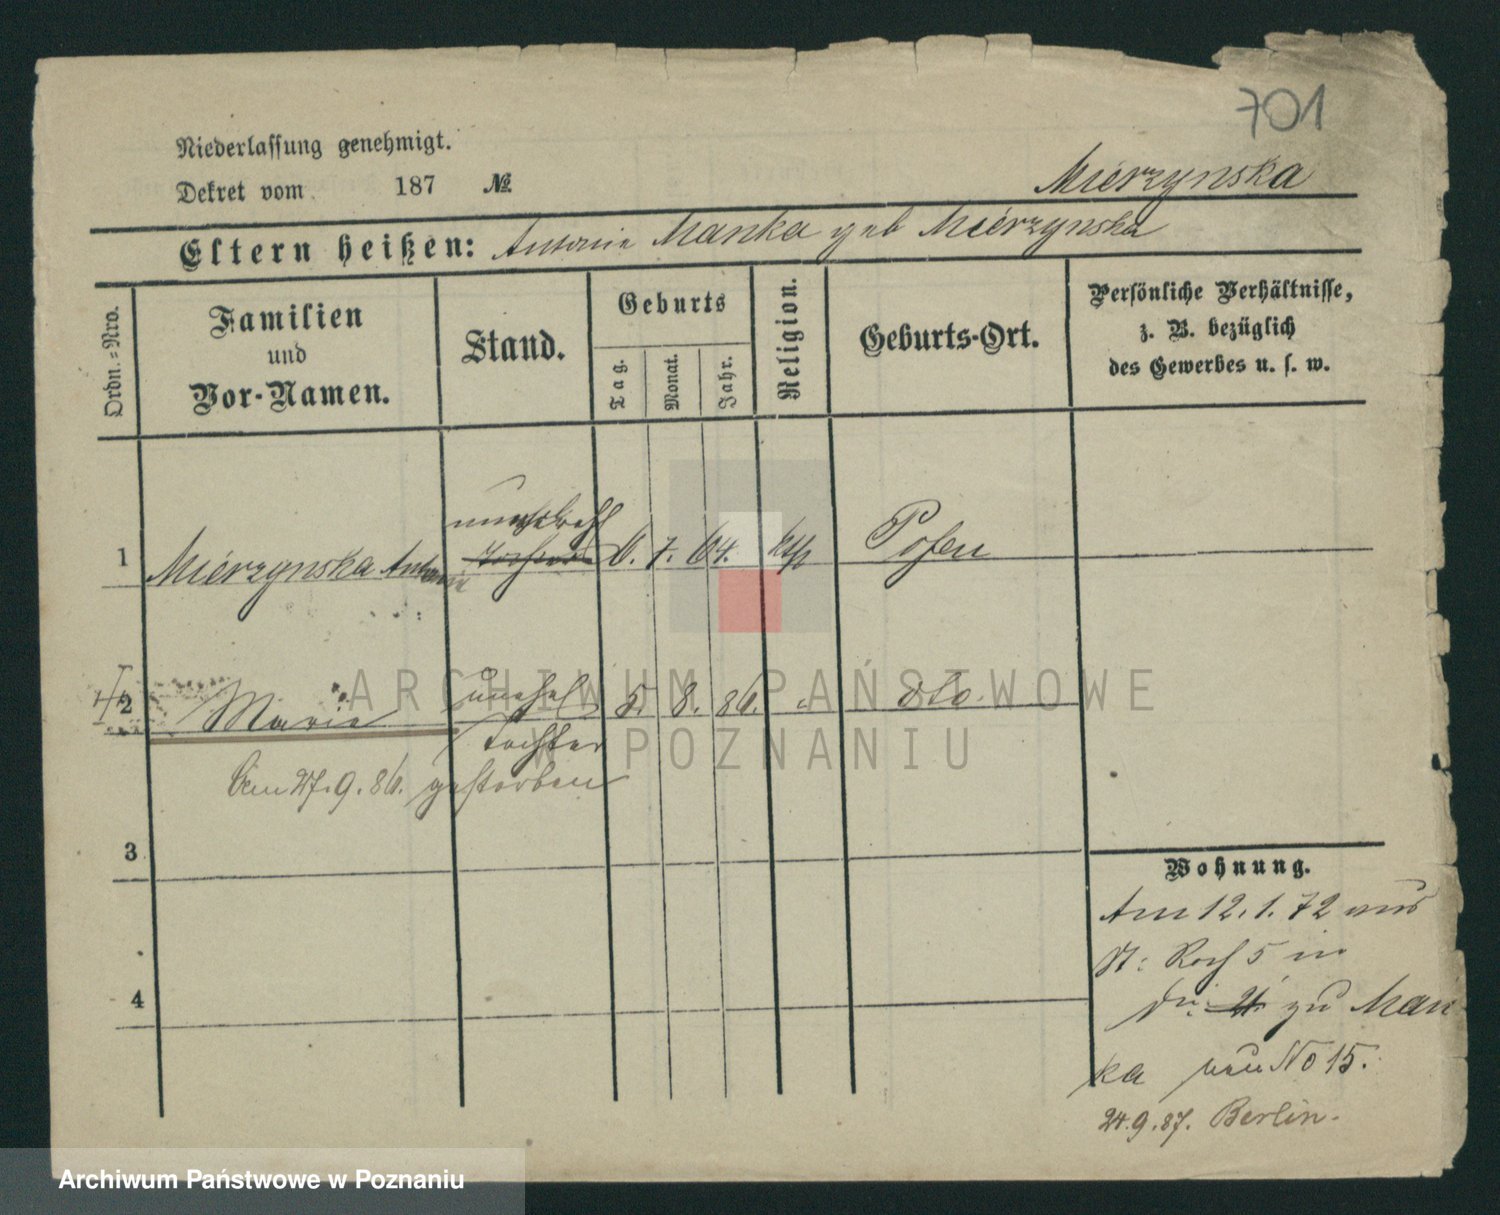 701
Niederlassung genehmigt.
Dekret vom 187 №
Mierzynska
Eltern heißen: Antonie Manka geb Mierzynska
Ordn.=Nro.
Familien
und
Vor-Namen.
Stand.
Geburts
Tag.
Monat.
Jahr.
Religion.
Geburts-Ort.
Persönliche Verhältnisse,
z. B. bezüglich
des Gewerbes u. s. w.
1 Mierzynska Antonie unverehl Tochter 6. 7. 64. kth Posen
2 Marie unehel 5. 8. 86. " dto.
Tochter
Am 27.9.86. gestorben
3
4
Wohnung.
Am 12.1.72 aus
St: Roch 5 in
No: 4 zu Man
ka neu No 15.
24.9.87. Berlin.
ARCHIWUM PAŃSTWOWE
W POZNANIU
Archiwum Państwowe w Poznaniu